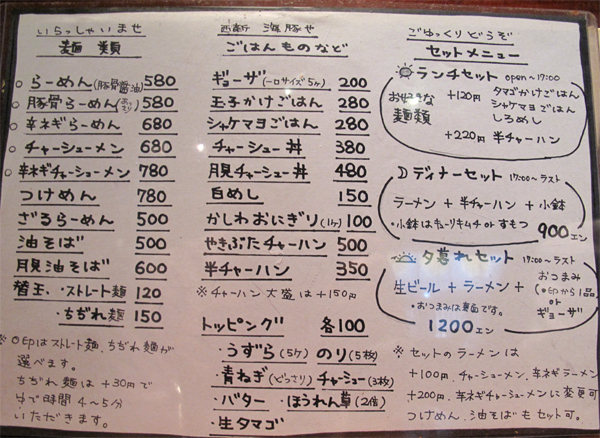 いらっしゃいませ
麺 類
○らーめん(豚骨醤油) 580
○豚骨らーめん(あっさり) 580
○辛ネギらーめん 680
○チャーシューメン 680
○辛ネギチャーシューメン 780
つけめん 780
ざるらーめん 500
油そば 500
月見油そば 600
替玉、・ストレート麺 120
・ちぢれ麺 150
※○印はストレート麺、ちぢれ麺が
選べます。
ちぢれ麺は+30円で
ゆで時間4~5分
いただきます。
西新 海豚や
ごはんものなど
ギョーザ(一口サイズ5ヶ) 200
玉子かけごはん 280
シャケマヨごはん 280
チャーシュー丼 380
月見チャーシュー丼 480
白めし 150
かしわおにぎり(1ヶ) 100
やきぶたチャーハン 500
半チャーハン 350
※チャーハン大盛は+150円
トッピング 各100
・うずら(5ケ) のり(5枚)
・青ねぎ(どっさり) チャーシュー(3枚)
・バター ・ほうれん草(2倍)
・生タマゴ
ごゆっくりどうぞ
セットメニュー
ランチセット open~17:00
お好きな麺類
+120円 タマゴかけごはん
シャケマヨごはん
しろめし
+220円 半チャーハン
ディナーセット 17:00~ラスト
ラーメン + 半チャーハン + 小鉢
・小鉢はキューリキムチ or すもつ
900エン
夕暮れセット 17:00~ラスト
生ビール + ラーメン +
おつまみ
(○印から1品)
or
ギョーザ
・おつまみは裏面です。
1200エン
※セットのラーメンは
+100円、チャーシューメン、辛ネギラーメン
+200円、辛ネギチャーシューメンに変更可
つけめん、油そばもセット可。